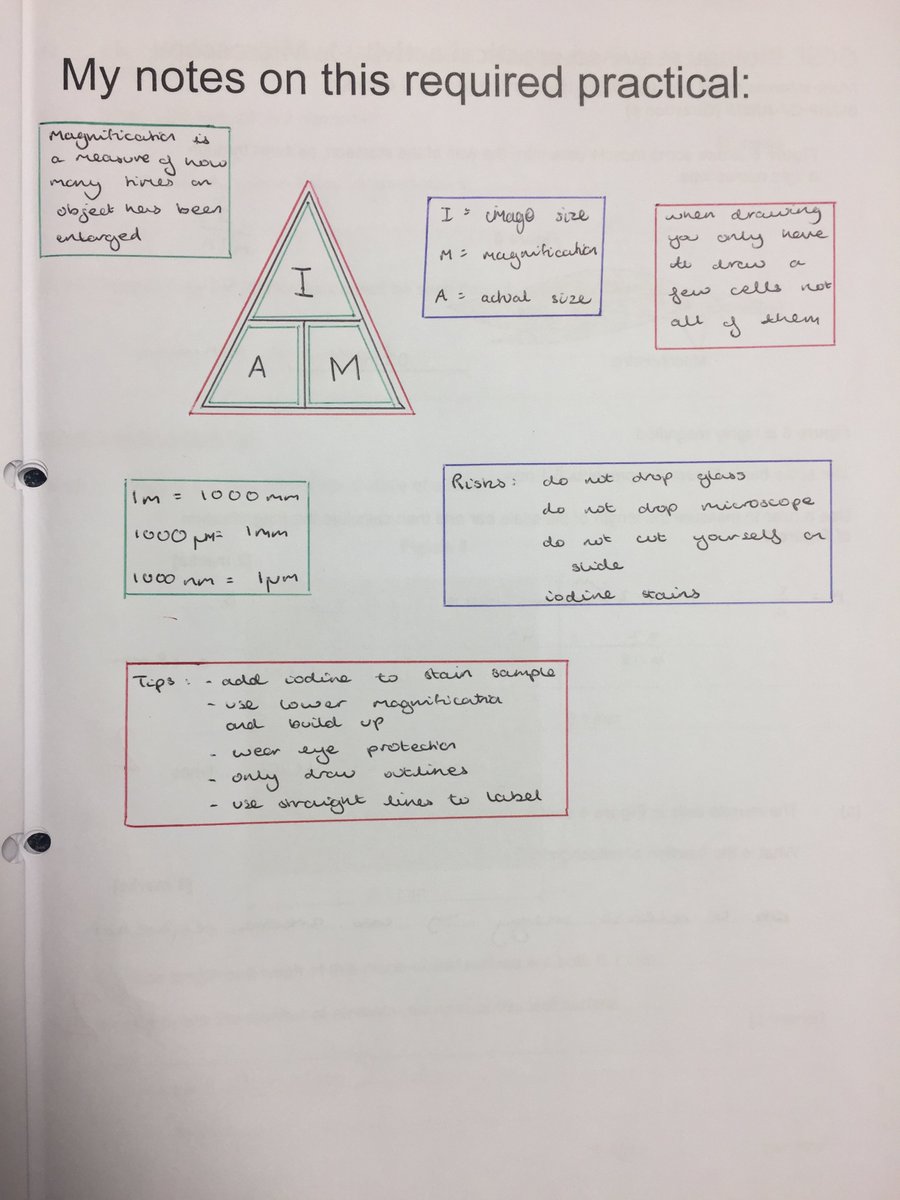 My notes on this required practical:
Magnification is
a measure of how
many times an
object has been
enlarged
I
A
M
I = image size
M = magnification
A = actual size
when drawing
you only have
to draw a
few cells not
all of them
1m = 1000mm
1000 μm = 1mm
1000 nm = 1μm
Risks: do not drop glass
do not drop microscope
do not cut yourself on
slide
iodine stains
Tips: - add iodine to stain sample
- use lower magnification
and build up
- wear eye protection
- only draw outlines
- use straight lines to label